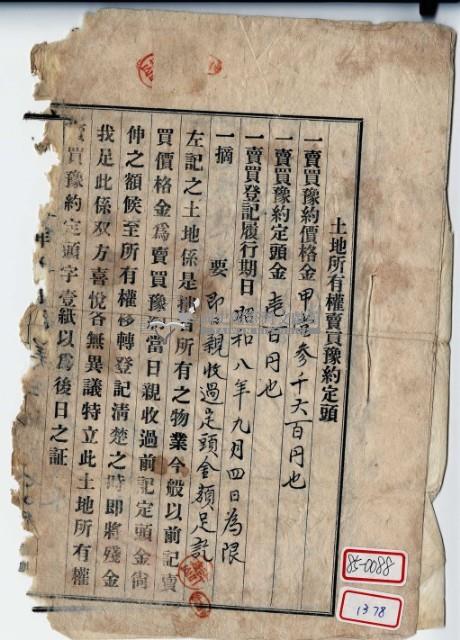 土地所有權賣買豫約定頭
一賣買豫約價格金 甲 參千六百円也
一賣買豫約定頭金 壱百円也
一賣買登記履行期日 昭和八年九月四日為限
一摘 要 即 親收過定頭金額足訖
左記之土地係是 所有之物業今般以前記賣
買價格金爲賣買豫 當日親收過前記定頭金尙
伸之額候至所有權移轉登記清楚之時即將殘金
我足此係双方喜悅各無異議特立此土地所有權
賣買豫約定頭字壹紙以爲後日之証
85-0088
1378